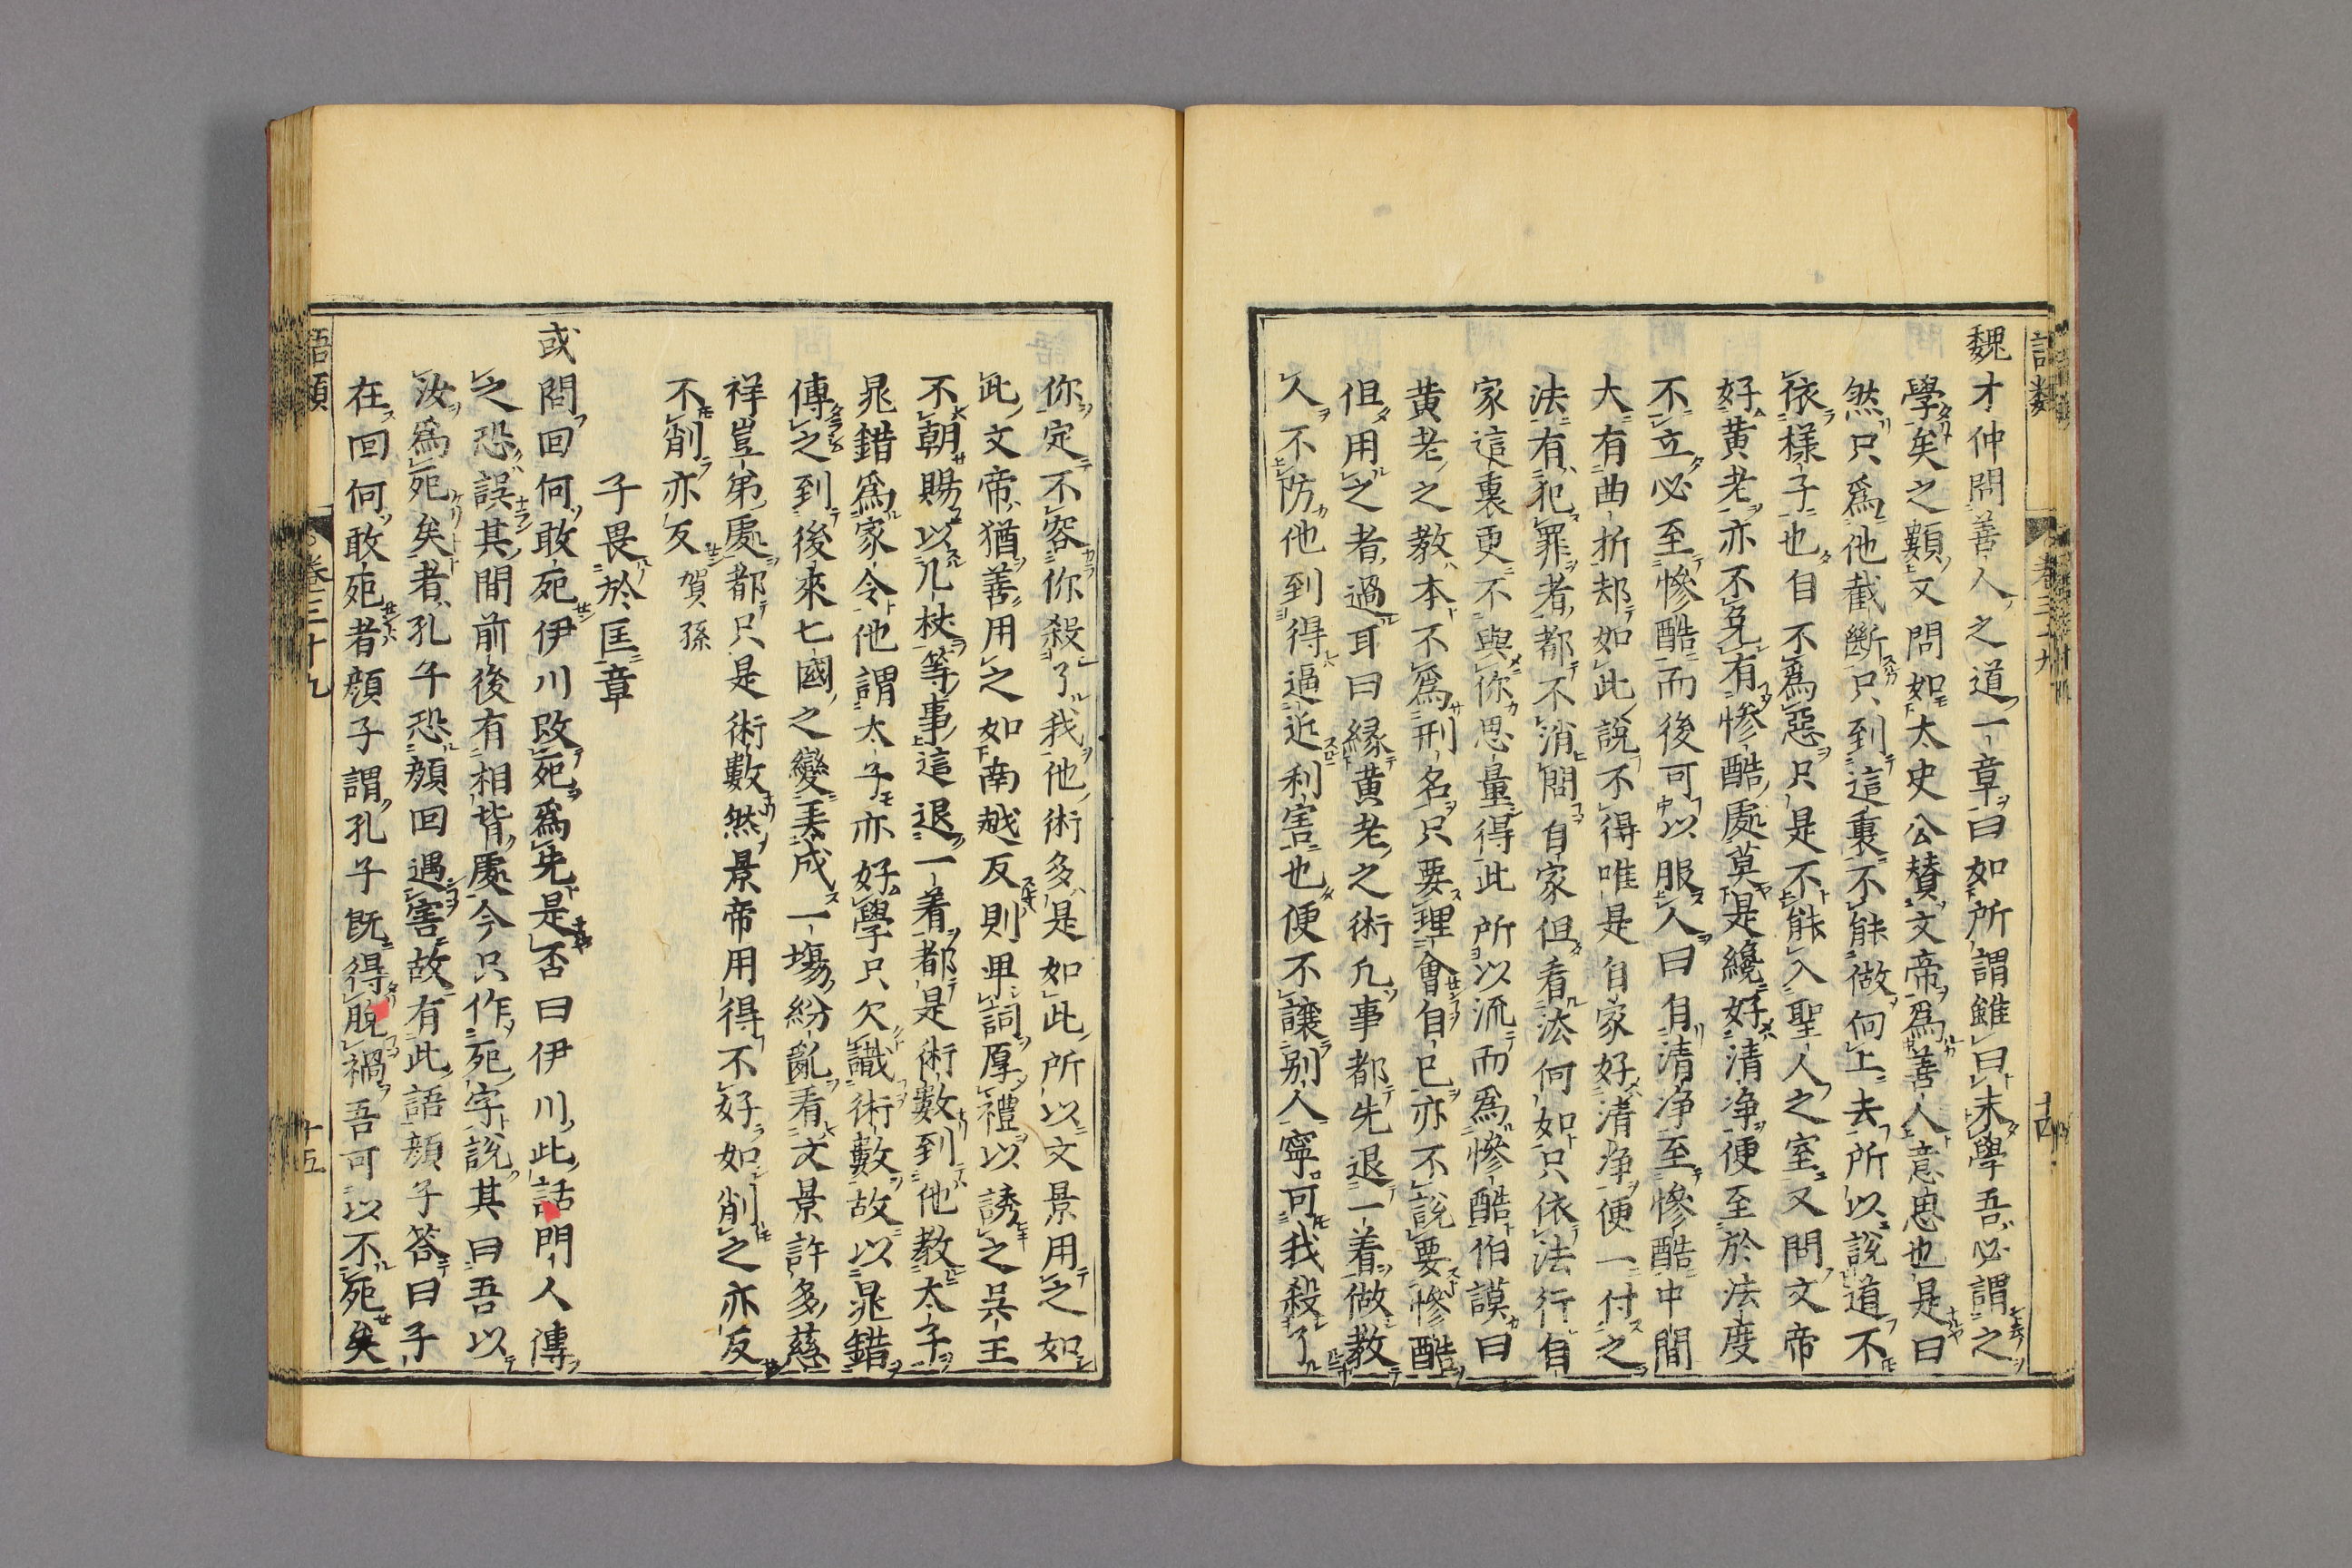 魏才仲問善人之道一章曰如所謂雖曰未學吾必謂之
學矣之類又問如太史公贊文帝爲善人意思也是曰
然只爲他截斷只到這裏不能做向上去所以說道不
依樣子也自不爲惡只是不能入聖人之室又問文帝
好黄老亦不免有慘酷處莫是纔好清净便至於法度
不立必至慘酷而後可以服人曰自清净至慘酷中間
大有曲折却如此說不得唯是自家好清净便一付之
法有犯罪者都不消問自家但看法何如只依法行自
家這裏更不與你思量得此所以流而爲慘酷伯謨曰
黄老之教本不爲刑名只要理會自已亦不說要慘酷
但用之者過耳曰縁黄老之術凡事都先退一着做教
人不防他到得逼近利害也便不讓别人寧可我殺了
語類
卷三十九
十四
你定不容你殺了我他術多是如此所以文景用之如
此文帝猶善用之如南越反則卑詞厚禮以誘之吳王
不朝賜以几杖等事這退一着都是術數到他教太子
晁錯爲家令他謂太子亦好學只欠識術數故以晁錯
傳之到後來七國之變弄成一塲紛亂看文景許多慈
祥豈弟處都只是術數然景帝用得不好如削之亦反
不削亦反賀孫
子畏於匡章
或問回何敢死伊川改死爲先是否曰伊川此話門人傳
之恐誤其間前後有相背處今只作死字說其曰吾以
汝爲死矣者孔子恐顔回遇害故有此語顔子答曰子
在回何敢死者顔子謂孔子既得脫禍吾可以不死矣
語類
卷三十九
十五